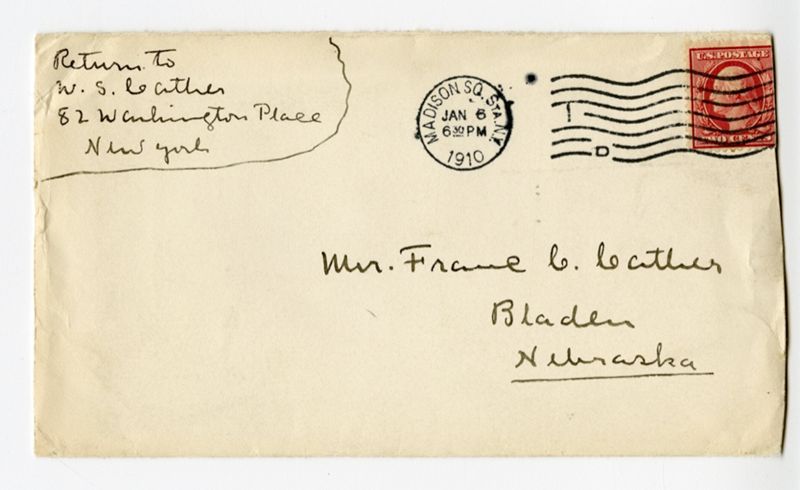 Return to
W. S. Cather
82 Washington Place
New York
MADISON SQ. STA. N.Y.
JAN 6
6 30 PM
1910
D
U.S. POSTAGE
Mr. Franc C. Cather
Bladen
Nebraska